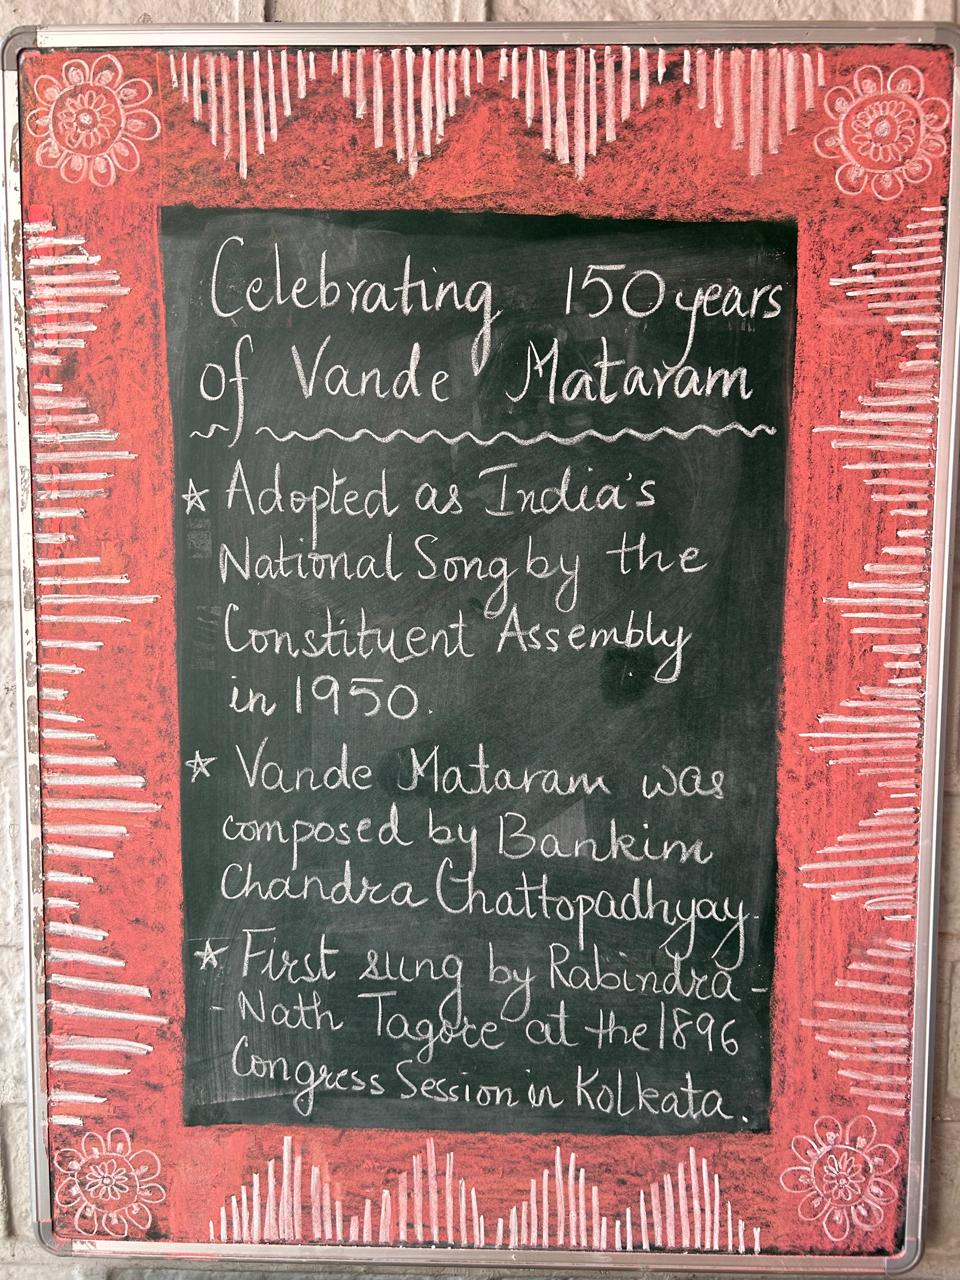 Celebrating 150 years
of Vande Mataram
☆ Adopted as India's
National Song by the
Constituent Assembly
in 1950.
☆ Vande Mataram was
composed by Bankim
Chandra Chattopadhyay.
☆ First sung by Rabindra -
- Nath Tagore at the 1896
Congress Session in Kolkata.